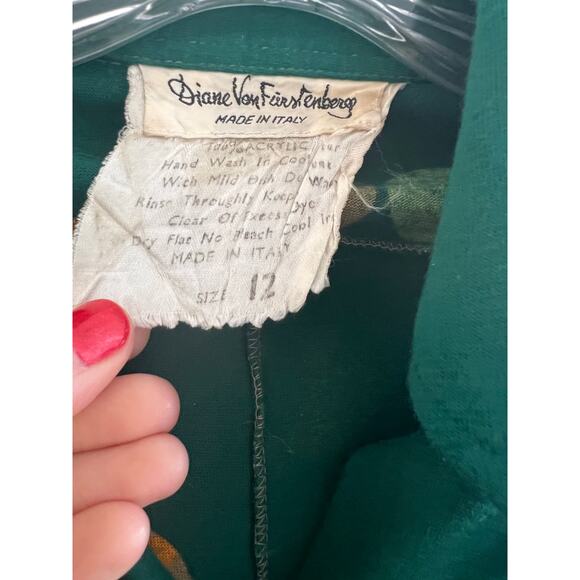 Diane Von Fürstenberg
MADE IN ITALY
100% ACRYLIC
Hand Wash In Cool
With Mild Do
Rinse Throughly Keep
Clear Of Excess
Dry Flat No Cool
MADE IN ITALY
SIZE 12